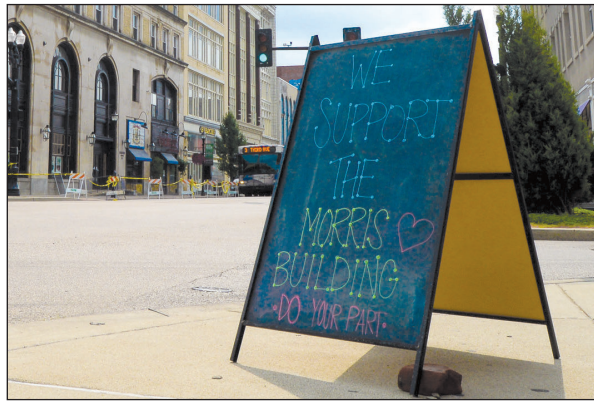 WE
SUPPORT
THE
MORRIS
BUILDING
DO YOUR PART